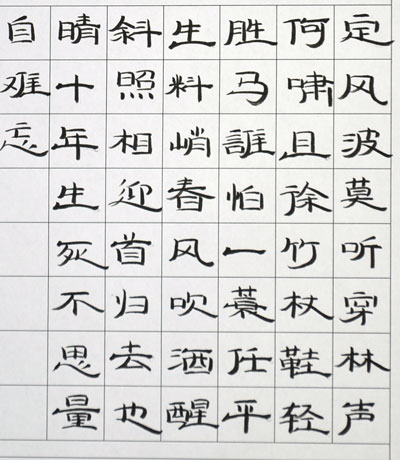 定风波莫听穿林声
何啸且徐竹杖鞋轻
胜马誰怕一蓑任平
生料峭春风吹酒醒
斜照相迎首归去也
晴十年生死不思量
自难忘